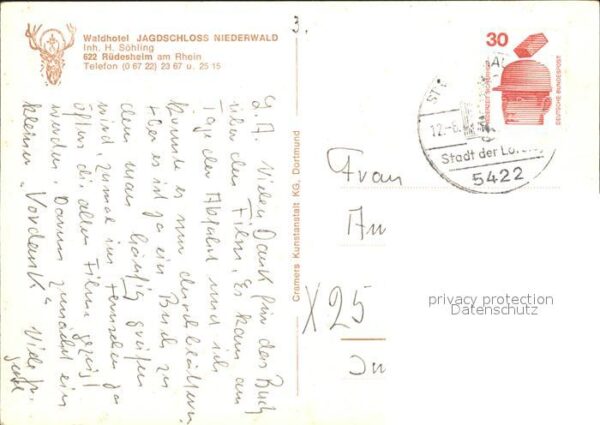 Waldhotel JAGDSCHLOSS NIEDERWALD
Inh. H. Söhling
622 Rüdesheim am Rhein
Telefon (0 67 22) 23 67 u. 25 15
3.
L. A. Vielen Dank für das Buch
über den Film. Es kam am
Tage der Abfahrt und ich
konnte es nur durchblättern.
Aber es ist ja ein Buch zu
dem man häufig greifen
wird, zumal im Fernsehen ja
öfters die alten Filme gezeigt
werden. Darum zunächst ein
kleiner "Vordank". Viele
Cramers Kunstanstalt KG, Dortmund
30
DEUTSCHE BUNDESPOST
ST
12.-6.
Stadt der Lorel
5422
Frau
An
X25
In
privacy protection
Datenschutz